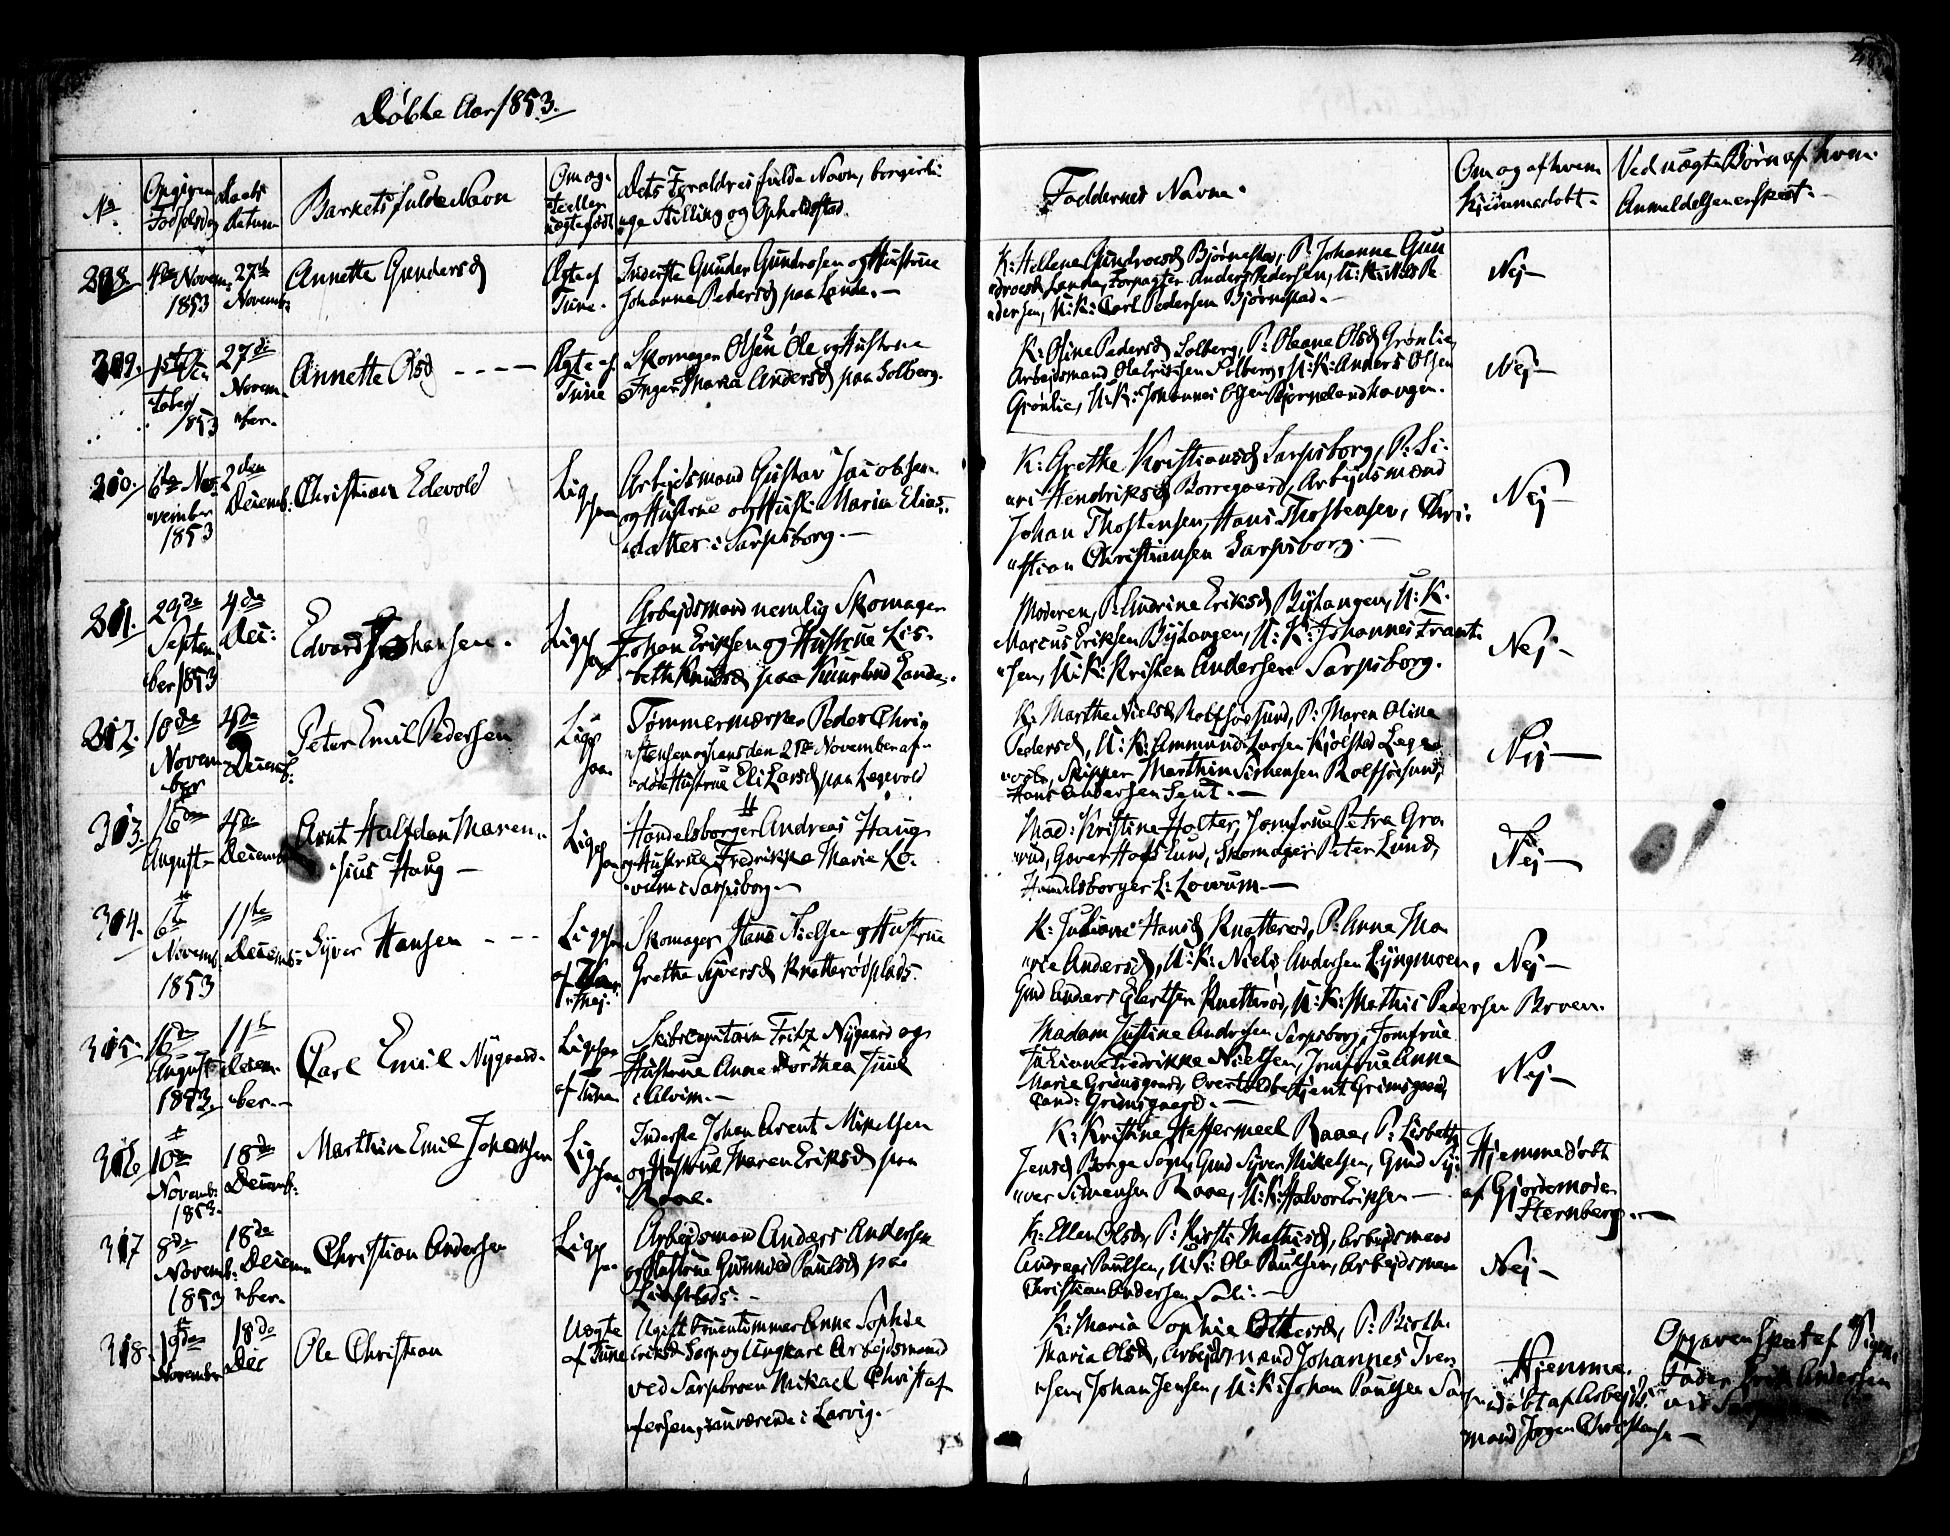 Døbte Aar 1853.
No
Angiven Fødselsdag
Daabs Datum
Barnets fulde Navn
Om ægte eller uægtefødt
Dets Forældres fulde Navn, borgerli-
"ge Stilling og Opholdsted.
Faddernes Navne.
Om og af hvem
hjemmedøbt.
Ved uægte Børn af hvem
Anmeldelsen er skeet.
308.
4de Novem.
1853
27de
Novemb:
Annette Gundersd
Ægte af
Tune.
Inderste Gunder Gundersen og Hustrue
Johanne Pedersd paa Lande.
K: Hellene Gundersd Bjørnstad, P: Johanne Gun
"dersd Lande, Forpagter Anders Pedersen, U: K: Nils Pe
"dersen, U: K: Carl Pedersen Bjørnstad.
Nej
309.
1ste Oc-
tober
1853
27de
Novem-
"ber.
Annette Olsd
Ægte af
Tune
Skomager Olsen Ole og Hustrue
Inger Maria Andersd paa Solberg.
K: Oline Pedersd Solberg, P: Oleane Olsd Grønlie,
Arbejdsmand Ole Eriksen Solberg, U: K: Anders Olsen
Grønlie, U: K: Johannes Olsen Bjørnelandhaugen.
Nej
310.
6te No-
"vember
1853
2den
Decemb:
Christian Edevold
Lige
saa
Arbejdsmand Gustav Jacobsen
og Hustrue og Hust: Maria Elias-
"datter i Sarpsborg.
K: Grethe Kristiansd Sarpsborg, P: Si-
"ri Hendriksd Borregaard, Arbejdsmænd
Johan Thostensen, Hans Thostensen, Chri-
"stian Christiansen Sarpsborg.
Nej
311.
29de
Septem
"ber 1853
4de
Dec:
Edvard Johansen.
Lige
saa
Arbejdsmand nemlig Skomager
Johan Eriksen og Hustrue Lis-
"beth Knudsd paa Lande.
Moderen, P: Andrine Eriksd Bylangen, U: K.
Marcus Eriksen Bylangen, U: K: Johannes Frant-
"sen, U: K: Kristen Andersen Sarpsborg.
Nej
312.
18de
Novem
ber
4de
Decemb:
Peter Emil Pedersen
Lige
saa.
Tømmermand Peder Chri
"stensen og hans den 21de November af-
"døde Hustrue Eli Larsd paa Legevold
K: Marthe Nielsd Rolfsøesund, P: Maren Olina
Pedersd, U: K: Ammund Larsen Kjølstad Lege
"vold, Skipper Marthin Simensen Rolfsøesund,
Hans Andersen
Nej
313.
16de
August
4de
Decemb
Arnt Halfdan Maren-
"sius Haug
Lige
saa
Handelsborger Andreas Haug
og Hustrue Fredrikke Marie Lo-
"vum i Sarpsborg.
Mad: Kristine Holter, Jomfrue Petra Gra
"rud, Hafslund, Skomager Peter Lund,
Handelsborger L: Lovum.
Nej
314.
6te
Novemb:
1853
11te
Decemb:
Syver Hansen
Ligesaa
af
Skomager Hans Nielsen og Hustrue
Grethe Syversd Knatterødplads.
K: Juliane Hansd Knatterød, P: Anne Ma
"rie Andersd, U: K: Niels Andersen Lyngmoen,
Gmd Anders Knatterød, U: K: Mathis Pedersen Broen.
Nej
315.
16de
August
1853.
11te
Decem
"ber.
Carl Emil Nygaard.
Ligesaa
af Tune
Skibscapitain Fritz Nygaard og
Hustrue Anne Dorthea Juul
i Alvim.
Madam Justine Andersen Sarpsborg, Jomfrue
Juliane Fredrikke Nielsen, Jomfrue Anne
Marie Grimsgaard, Overtoldbetjent Grimsgaard,
Cand: Grimsgaard.
Nej
316
10de
Novemb:
1853.
18de
Decemb:
Marthin Emil Johansen
Lige
saa.
Inderste Johan Arent Mikelsen
og Hustrue Maren Eriksd paa
Raae.
K: Kristine Heffermeel Raae, P: Lisbeth
Jensd Borge Sogn, Gmd Syver Mikelsen, Gmd Sy-
"ver Simensen Raae, U: K: Halvor Eriksen
Hjemmedøbt
af Gjordemoder
Sternberg.
317
8de
Novemb:
1853
18de
Decem
"ber.
Christian Andersen
Lige
saa
Arbejdsmand Anders Andersen
og Hustrue Gunnild Paulsd paa
K: Ellen Olsd, P: Kirsti Mathisd, Arbejdsmand
Andreas Paulsen, U: K: Ole Paulsen, Arbejdsmand
Christian Andersen Soli.
Nej
318.
19de
November
18de
Dec
Ole Christian
Uægte
af Tune
Ugift Fruentimmer Anne Sophie
Eriksd Sarp og Ungkarl Arbejdsmand
ved Sarpbroen Mikael Christof
"fersen, nuværende i Larvig.
K: Maria Sophie Ottersd, P: Birthe
Maria Olsd, Arbejdsmænd Johannes Iver
"sen, Johan Jensen, U: K: Johan Paulsen Sar
Hjemme
"døbt af Arbejds
mand Jørgen Christiansen
Opgaven skeet af Pigens
Fader Erik Andersen
ved